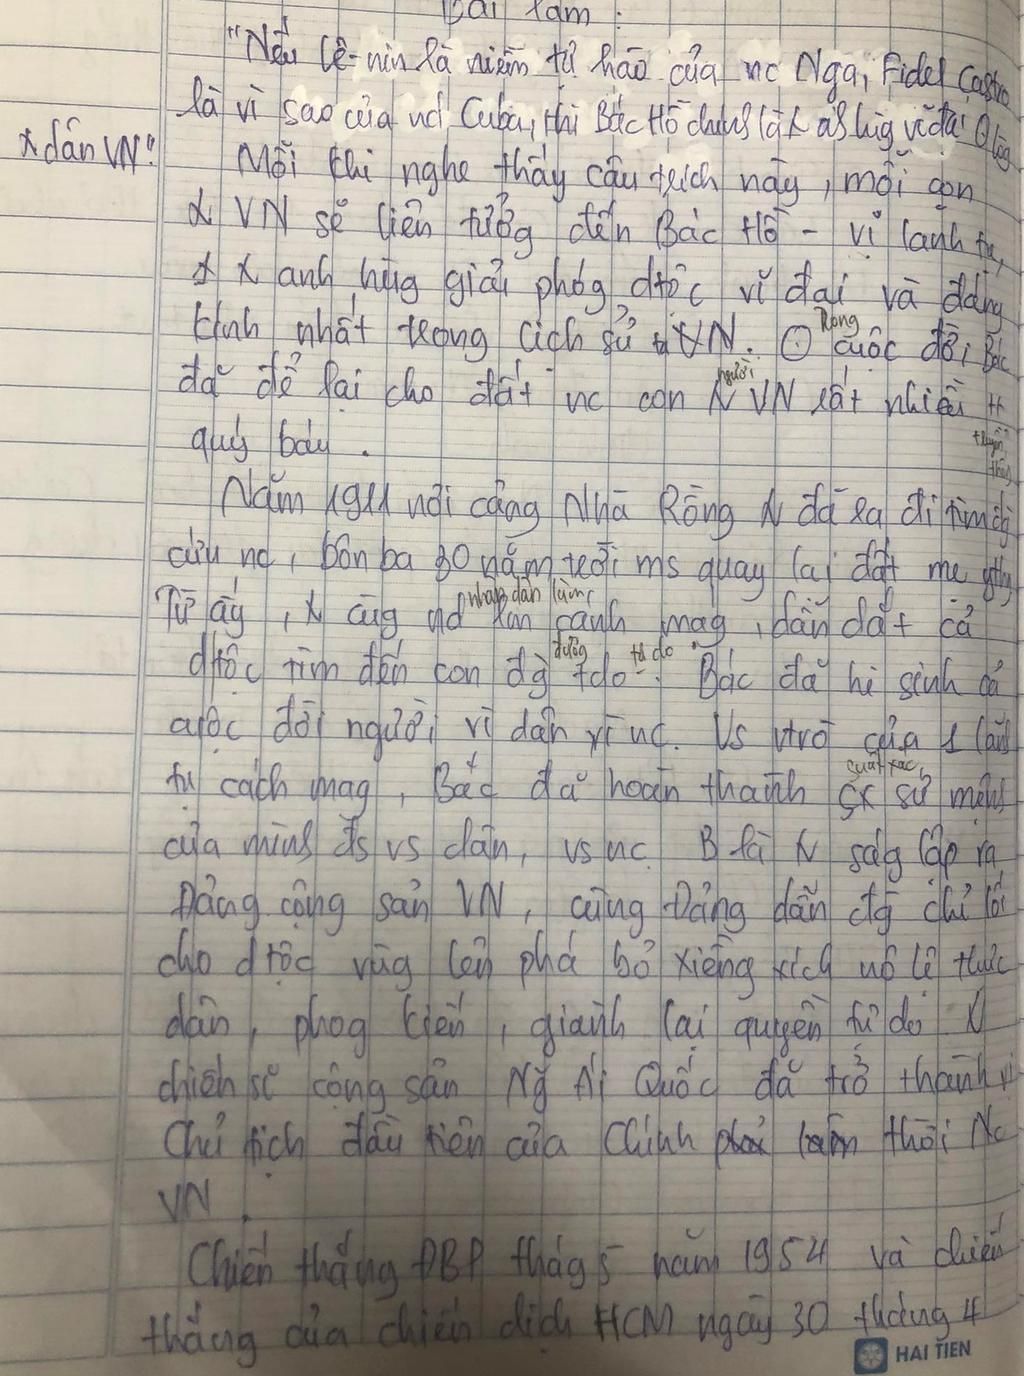 Bài làm:
"Nếu Lê-nin là niềm tự hào của nc Nga, Fidel Castro
là vì sao của nc Cuba, thì Bác Hồ chính là as hùg vĩ đại
dân VN"
Mỗi khi nghe thấy câu trích này, mỗi con
VN sẽ liên tưởng đến Bác Hồ - vị lãnh tụ,
anh hùg giải phóg dtộc vĩ đại và đáng
kính nhất trong lịch sử VN. Trong cuộc đời Bác
đã để lại cho đất nc con người VN rất nhiều truyền thống
quý báu.
Năm 1911 nơi cảng Nhà Rồng N đã ra đi tìm
cứu nc, bôn ba 30 năm trời ms quay lại đất mẹ
Từ ấy, cùg nhân dân làm cách mag, dẫn dắt cả
dtộc tìm đến con đường tự do. Bác đã hi sinh cả
cuộc đời người vì dân vì nc. Vs vtrò của 1 lãnh
tụ cách mag, Bác đã hoàn thành xuất xắc sứ mệnh
của mình đs vs dân, vs nc. B là N ság lập ra
Đảng cộng sản VN, cùng Đảng dẫn đg chỉ lối
cho dtộc vùg lên phá bỏ xiềng xích nô lệ thực
dân, phog kiến, giành lại quyền tự do
chiến sĩ cộng sản Ng Ái Quốc đã trở thành vị
Chủ tịch đầu tiên của Chính phủ lâm thời Nc
VN.
Chiến thắng ĐBP thág 5 năm 1954 và chiến
thắng của chiến dịch HCM ngày 30 tháng 4
HẢI TIẾN